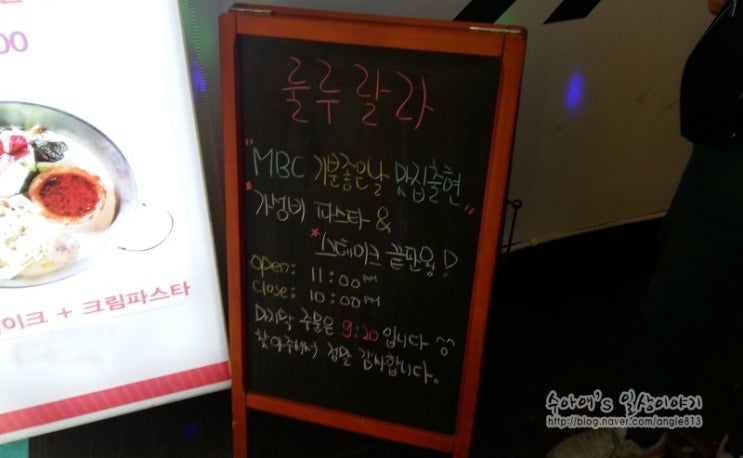 00
이크 + 크림파스타
룰루랄라
"MBC 기분좋은날 맛집출현"
* 가성비 파스타 &
* 스테이크 끝판왕!
open: 11:00 PM
close: 10:00 PM
마지막 주문은 9:20 입니다 ^^
찾아주셔서 정말 감사합니다.
수아애's 일상이야기
http://blog.naver.com/angle813